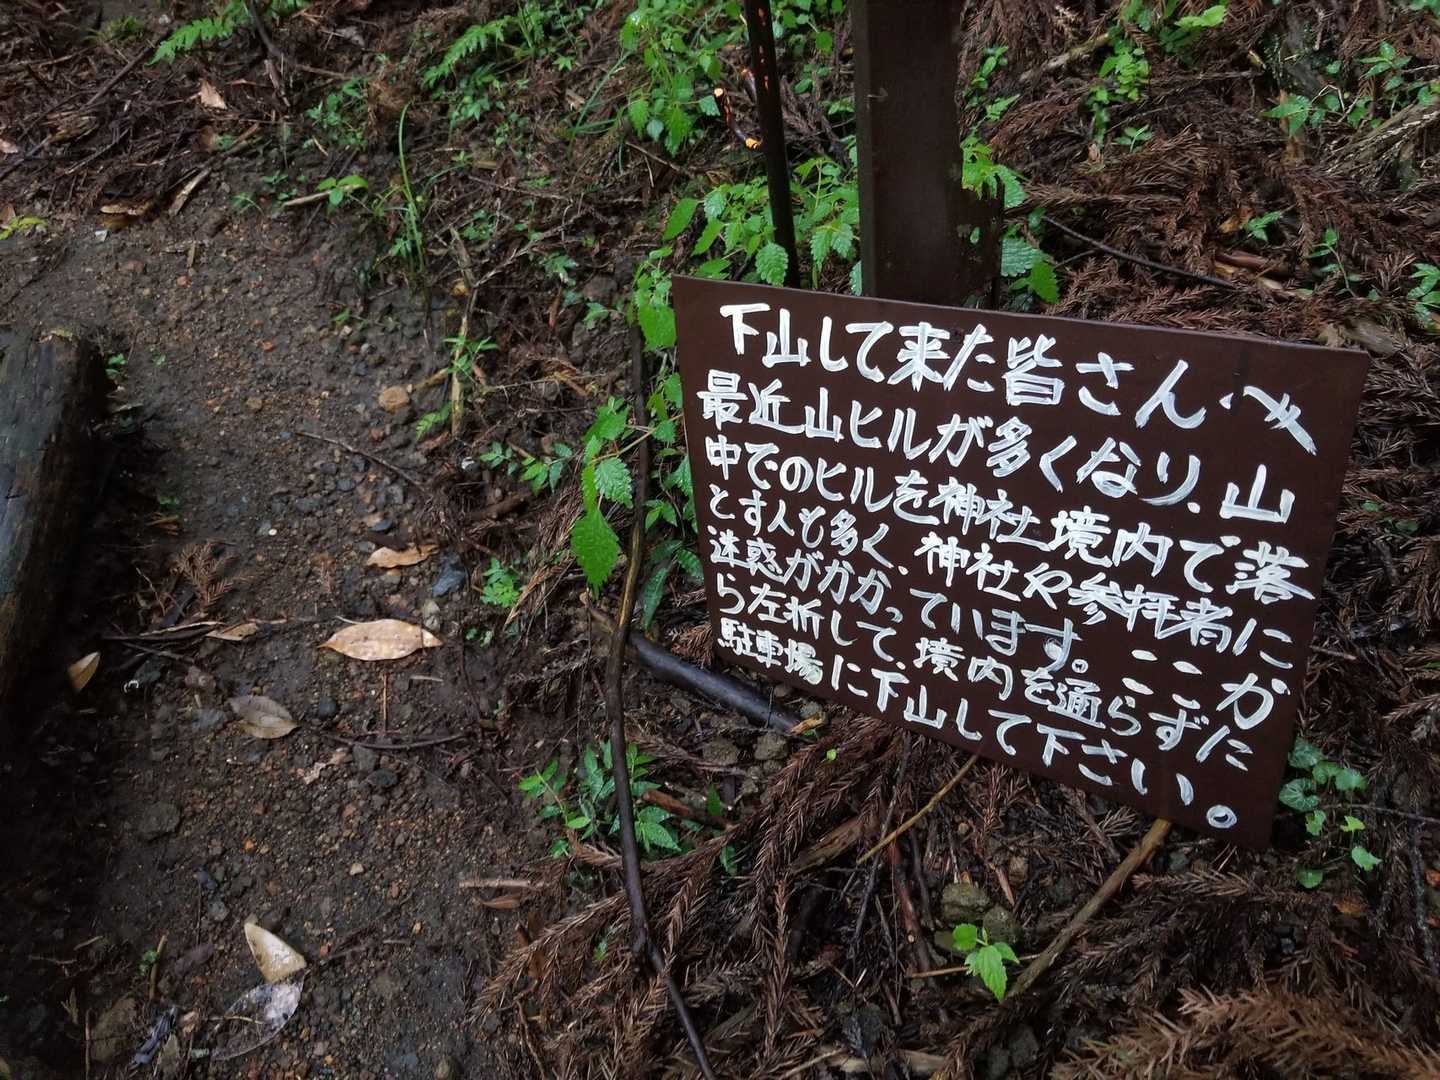 下山して来た皆さんへ
最近山ヒルが多くなり、山
中でのヒルを神社境内で落
とす人も多く、神社や参拝者に
迷惑がかかっています。ここか
ら左折して、境内を通らずに
駐車場に下山して下さい。